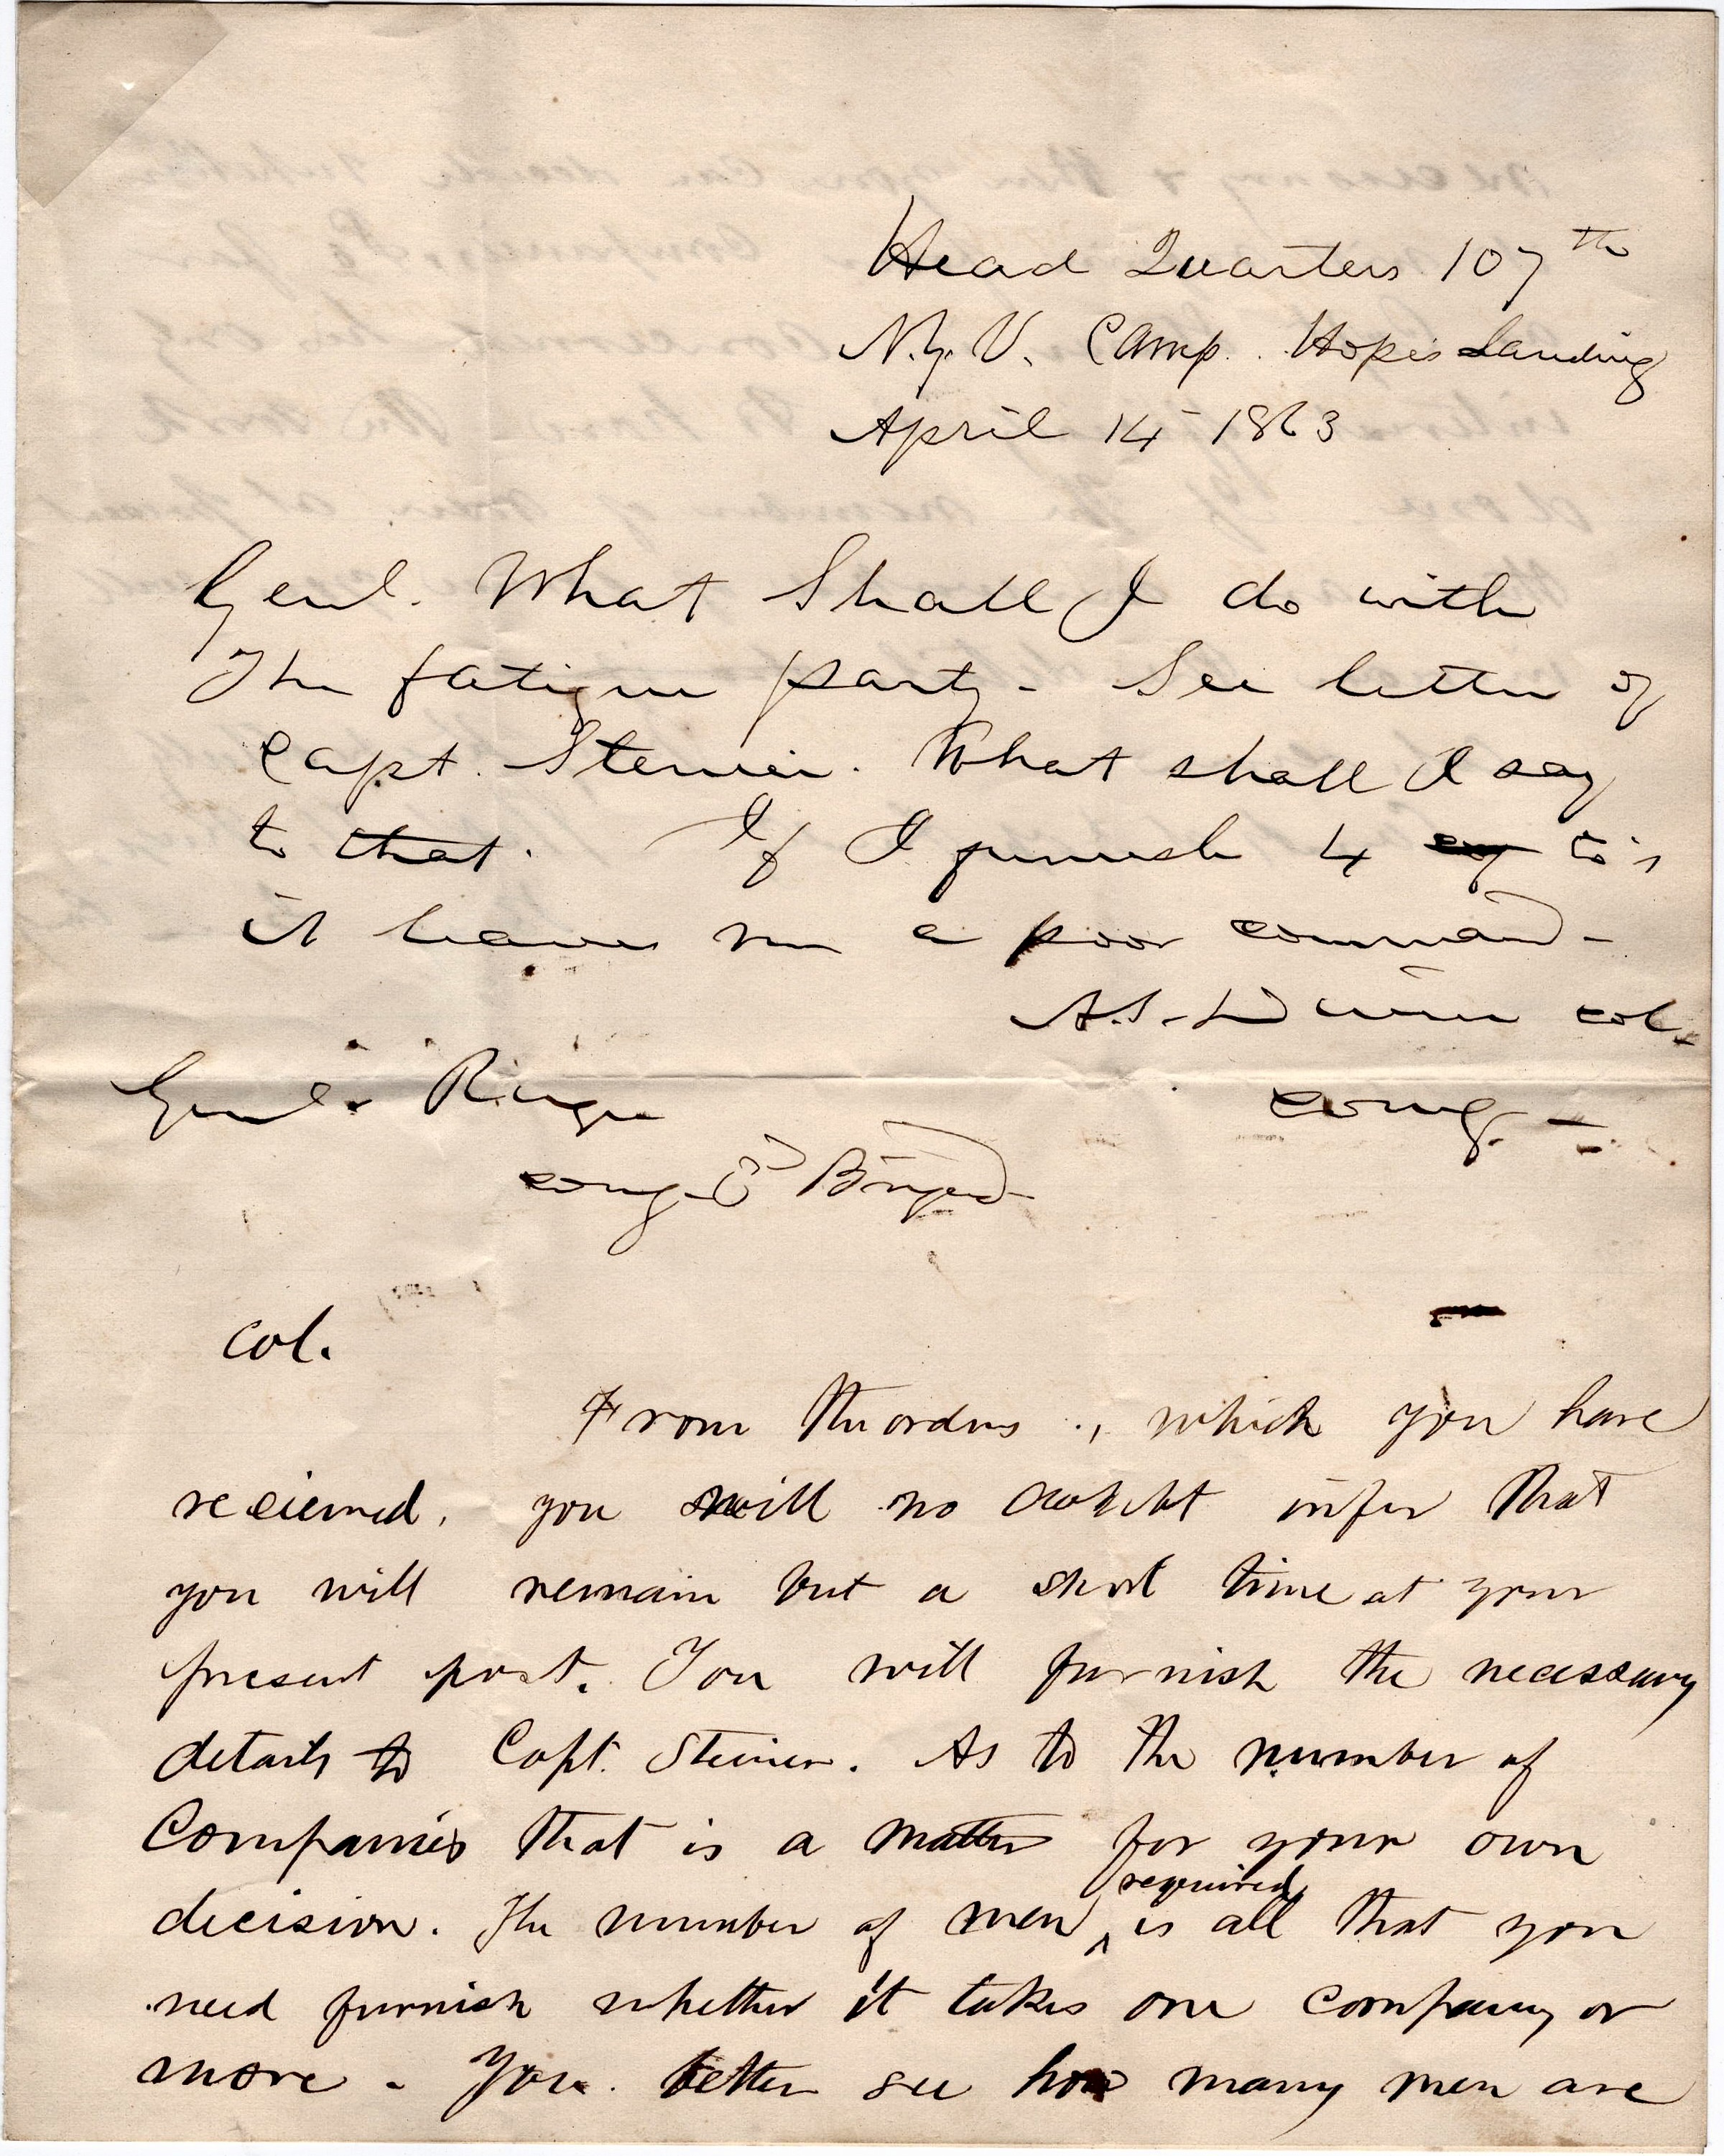 Head Quarters 107th
N.Y.V. Camp. Hope's Landing
April 14 1863
Genl. What Shall I do with
The fatigue party - See letter of
Capt. Steiner. What shall I say
to that. If I furnish 4 Co's
it leaves me a poor command -
A.S. Diven Col.
Genl. Ruger Comg. -
Comg 3 Brigd
Col.
From the orders, which you have
receieved, you will no doubt infer that
you will remain but a short time at your
present post. You will furnish the necessary
details to Capt. Steiner. As to the number of
Companies that is a matter for your own
decision. The number of men required is all that you
need furnish whether it takes one company or
more - You better see how many men are